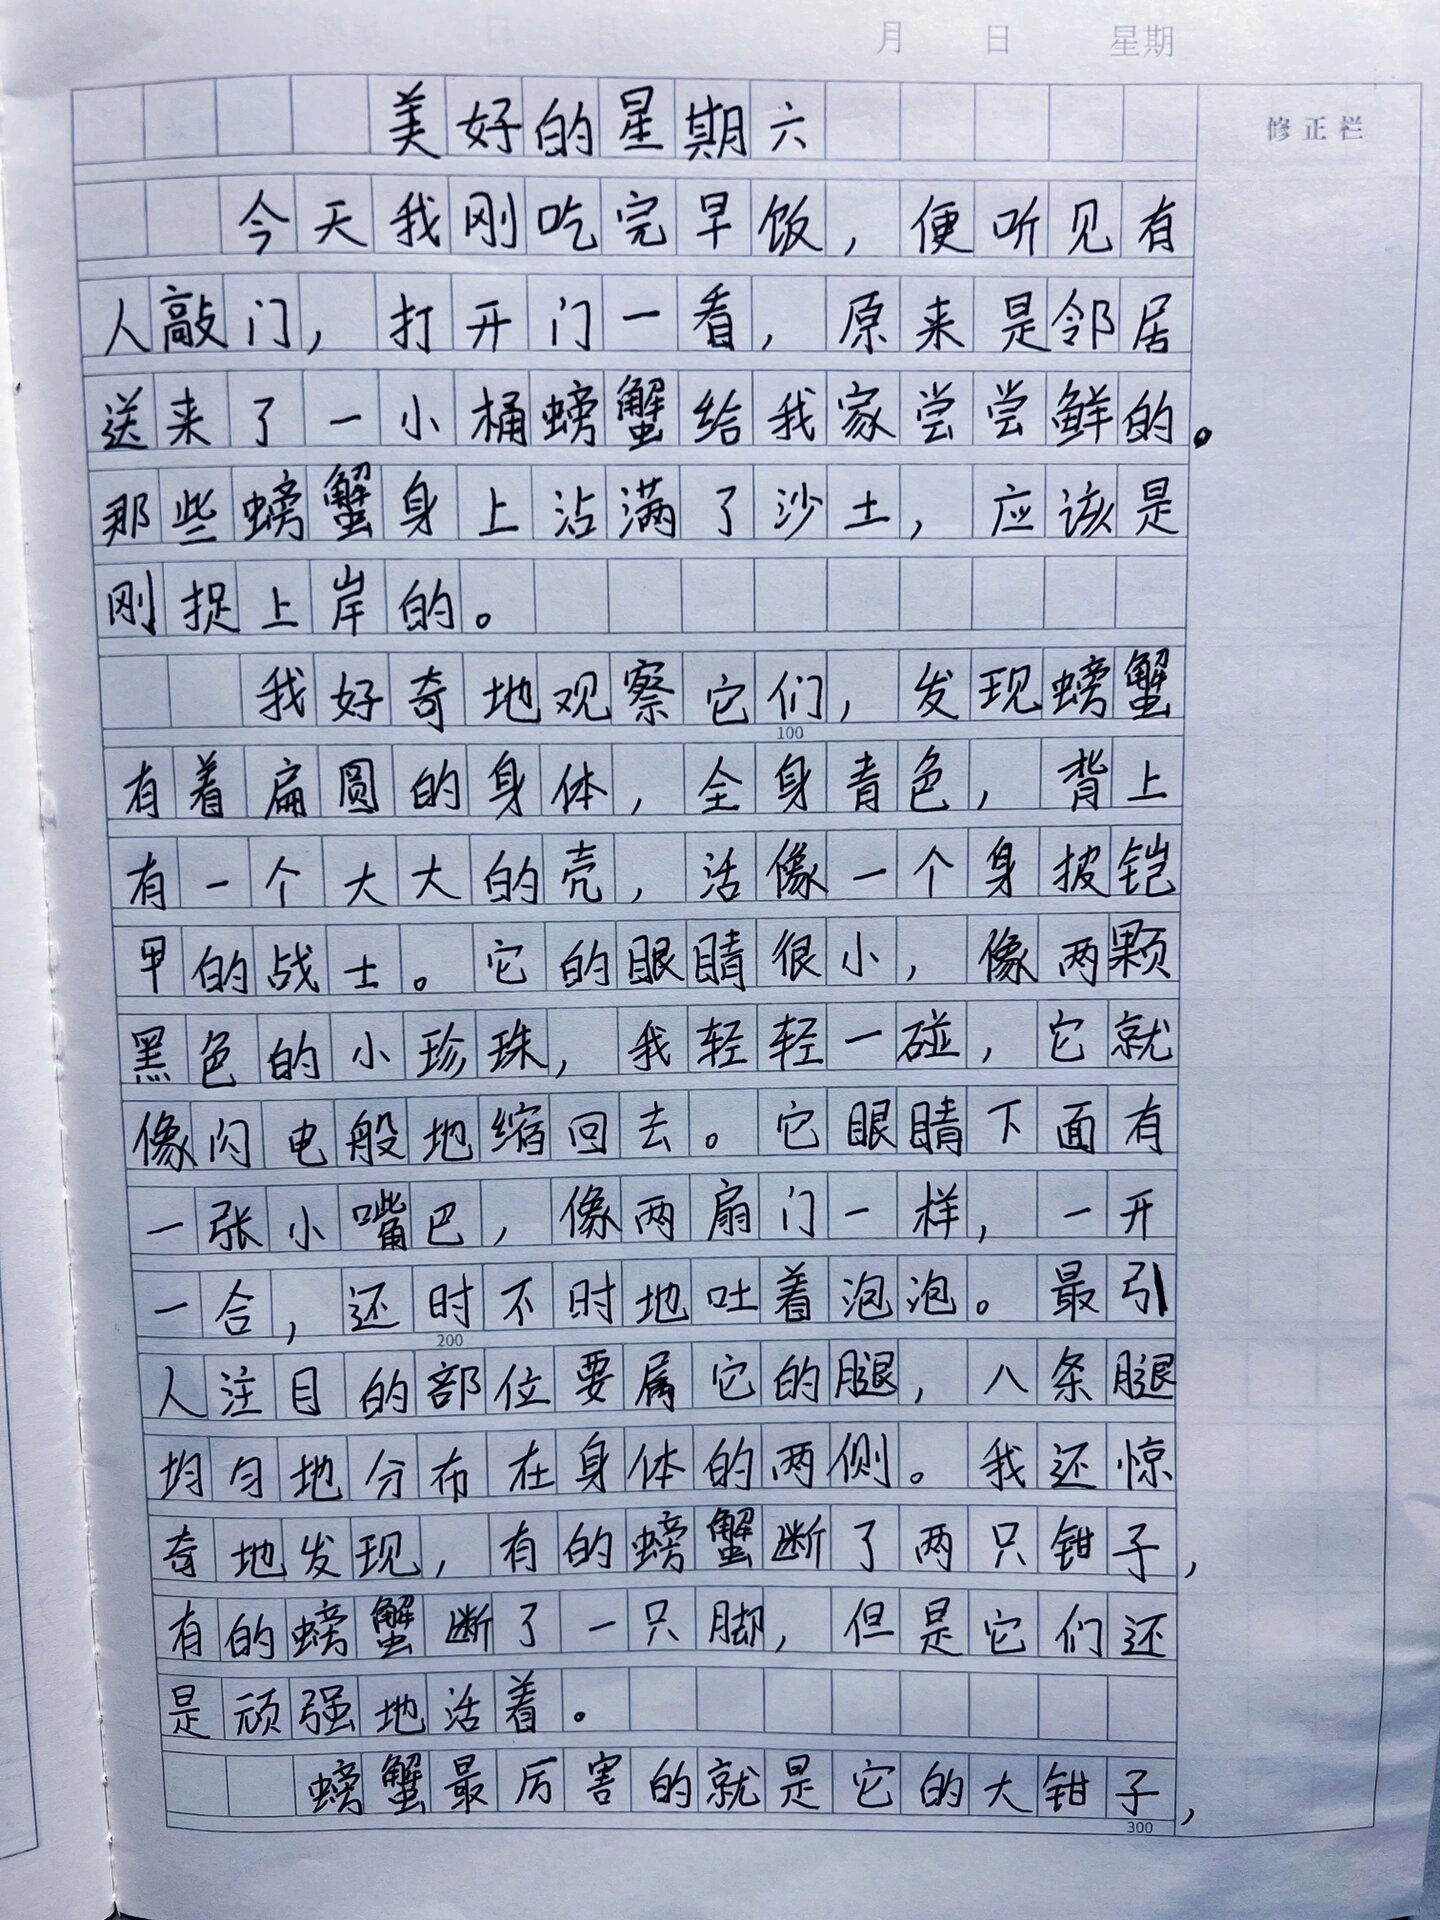 月 日 星期
修正栏
美好的星期六
今天我刚吃完早饭，便听见有
人敲门，打开门一看，原来是邻居
送来了一小桶螃蟹给我家尝尝鲜的。
那些螃蟹身上沾满了沙土，应该是
刚捉上岸的。
我好奇地观察它们，发现螃蟹
100
有着扁圆的身体，全身青色，背上
有一个大大的壳，活像一个身披铠
甲的战士。它的眼睛很小，像两颗
黑色的小珍珠，我轻轻一碰，它就
像闪电般地缩回去。它眼睛下面有
一张小嘴巴，像两扇门一样，一开
一合，还时不时地吐着泡泡。最引
200
人注目的部位要属它的腿，八条腿
均匀地分布在身体的两侧。我还惊
奇地发现，有的螃蟹断了两只钳子，
有的螃蟹断了一只脚，但是它们还
是顽强地活着。
螃蟹最厉害的就是它的大钳子，
300